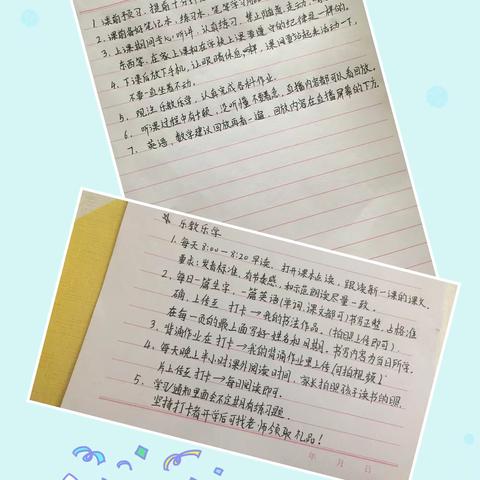 1.课前预习,提前十分钟
2.课前备好笔记本、练习本、笔等学习用品
3.上课期间专心听讲,认真练习,禁止随意走动、
东西等,在家上课和在学校上课要遵守的纪律是一样的。
4.下课后放下手机,让眼睛休息,课间要站起来活动一下,
不要一直坐着不动。
5、关注乐教乐学,认真完成各科作业。
6、听课过程中有卡顿,没听懂不要着急,直播内容都可以看回放。
7、英语、数学建议回放再看一遍,回放内容在直播屏幕的下方
乐教乐学
1.每天8:00—8:20早读、打开课本点读,跟读新一课的课文。
要求:发音标准,有节奏感,和示范朗读尽量一致。
2.每日一篇生字、一篇英语(单词、课文都可)书写正整,占格准
确,上传至 打卡→我的书法作品。(拍照上传即可).
在每一页的最上面写好姓名和日期。书写内容为当日所学。
3.背诵作业在打卡→我的背诵作业里上传(可拍视频)
4.每天晚上半小时课外阅读时间,家长拍照孩子读书的照
片上传至打卡→每日阅读即可.
5、学弘通知里面会不定期有练习题.
坚持打卡者开学后可找老师领取礼品!
年 月 日